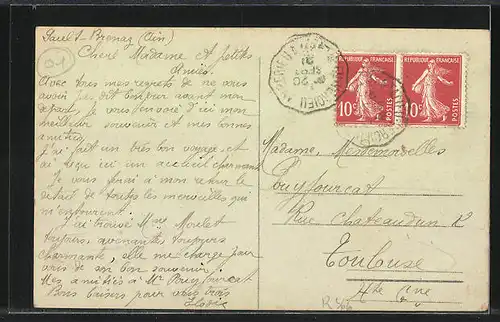 Sault-Brénaz (Ain)
01
Chère Madame et petites
Amies
Avec tous mes regrets de ne vous
avoir pas dit bonjour avant mon
départ je vous envoie d'ici mon
meilleur souvenir et mes bonnes
amitiés
J'ai fait un très bon voyage et j'ai
ai reçu ici un accueil charmant
Je vous ferai à mon retour le
détail de toutes les merveilles qui
m'entourent.
J'ai trouvé Mme Moulet
toujours avenante toujours
charmante, elle me charge pour
vous de son bon souvenir
Mes amitiés à Mr Pouyfourcat
Bons baisers pour vous trois
RÉPUBLIQUE FRANÇAISE
10c
POSTES
RÉPUBLIQUE FRANÇAISE
10c
POSTES
Madame, Mesdemoiselles
Pouyfourcat
Rue Chateaudun 12
Toulouse
Hte Gne